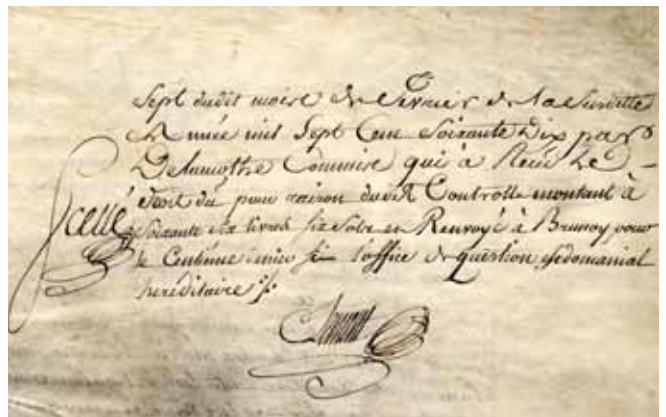 Sept dudit mois de fevrier de la susditte
Année mil Sept Cent Soixante Dix par
Delamothe Commis qui à Reçu Le
droit dû pour raison dudit Controlle montant à
Scellé
Soixante six livres six sols en Renvoyé à Brunoy pour
le Centiéme denier si l'office de question est domanial
hereditaire ·/.